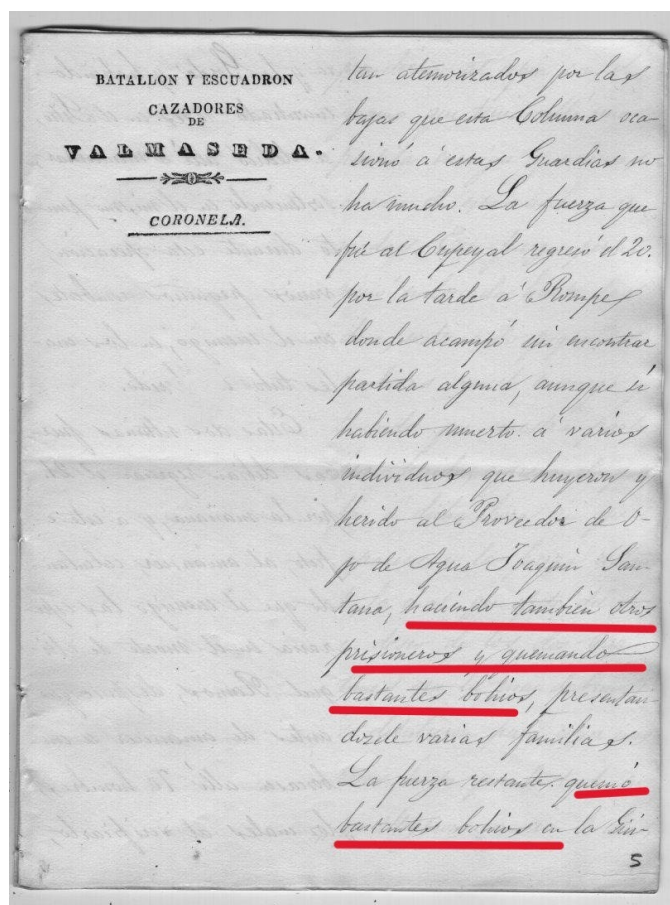 BATALLON Y ESCUADRON
CAZADORES
DE
VALMASEDA.
CORONELA.
tan atemorizados por las
bajas que esta Columna oca-
sionó á estas Guardias no
ha mucho. La fuerza que
fué al Cupeyal regresó el 20.
por la tarde á Rompe
donde acampó sin encontrar
partida alguna, aunque si
habiendo muerto á varios
individuos que huyeron y
herido al Proveedor de O-
jo de Agua Joaquin San-
tana, haciendo tambien otros
prisioneros y quemando
bastantes bohios, presentan-
dozele varias familias.
La fuerza restante quemó
bastantes bohios en la
5